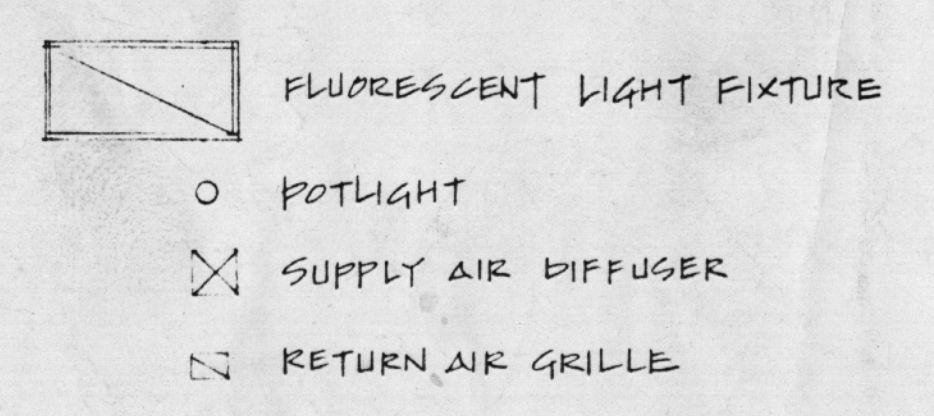 FLUORESCENT LIGHT FIXTURE
POTLIGHT
SUPPLY AIR DIFFUSER
RETURN AIR GRILLE